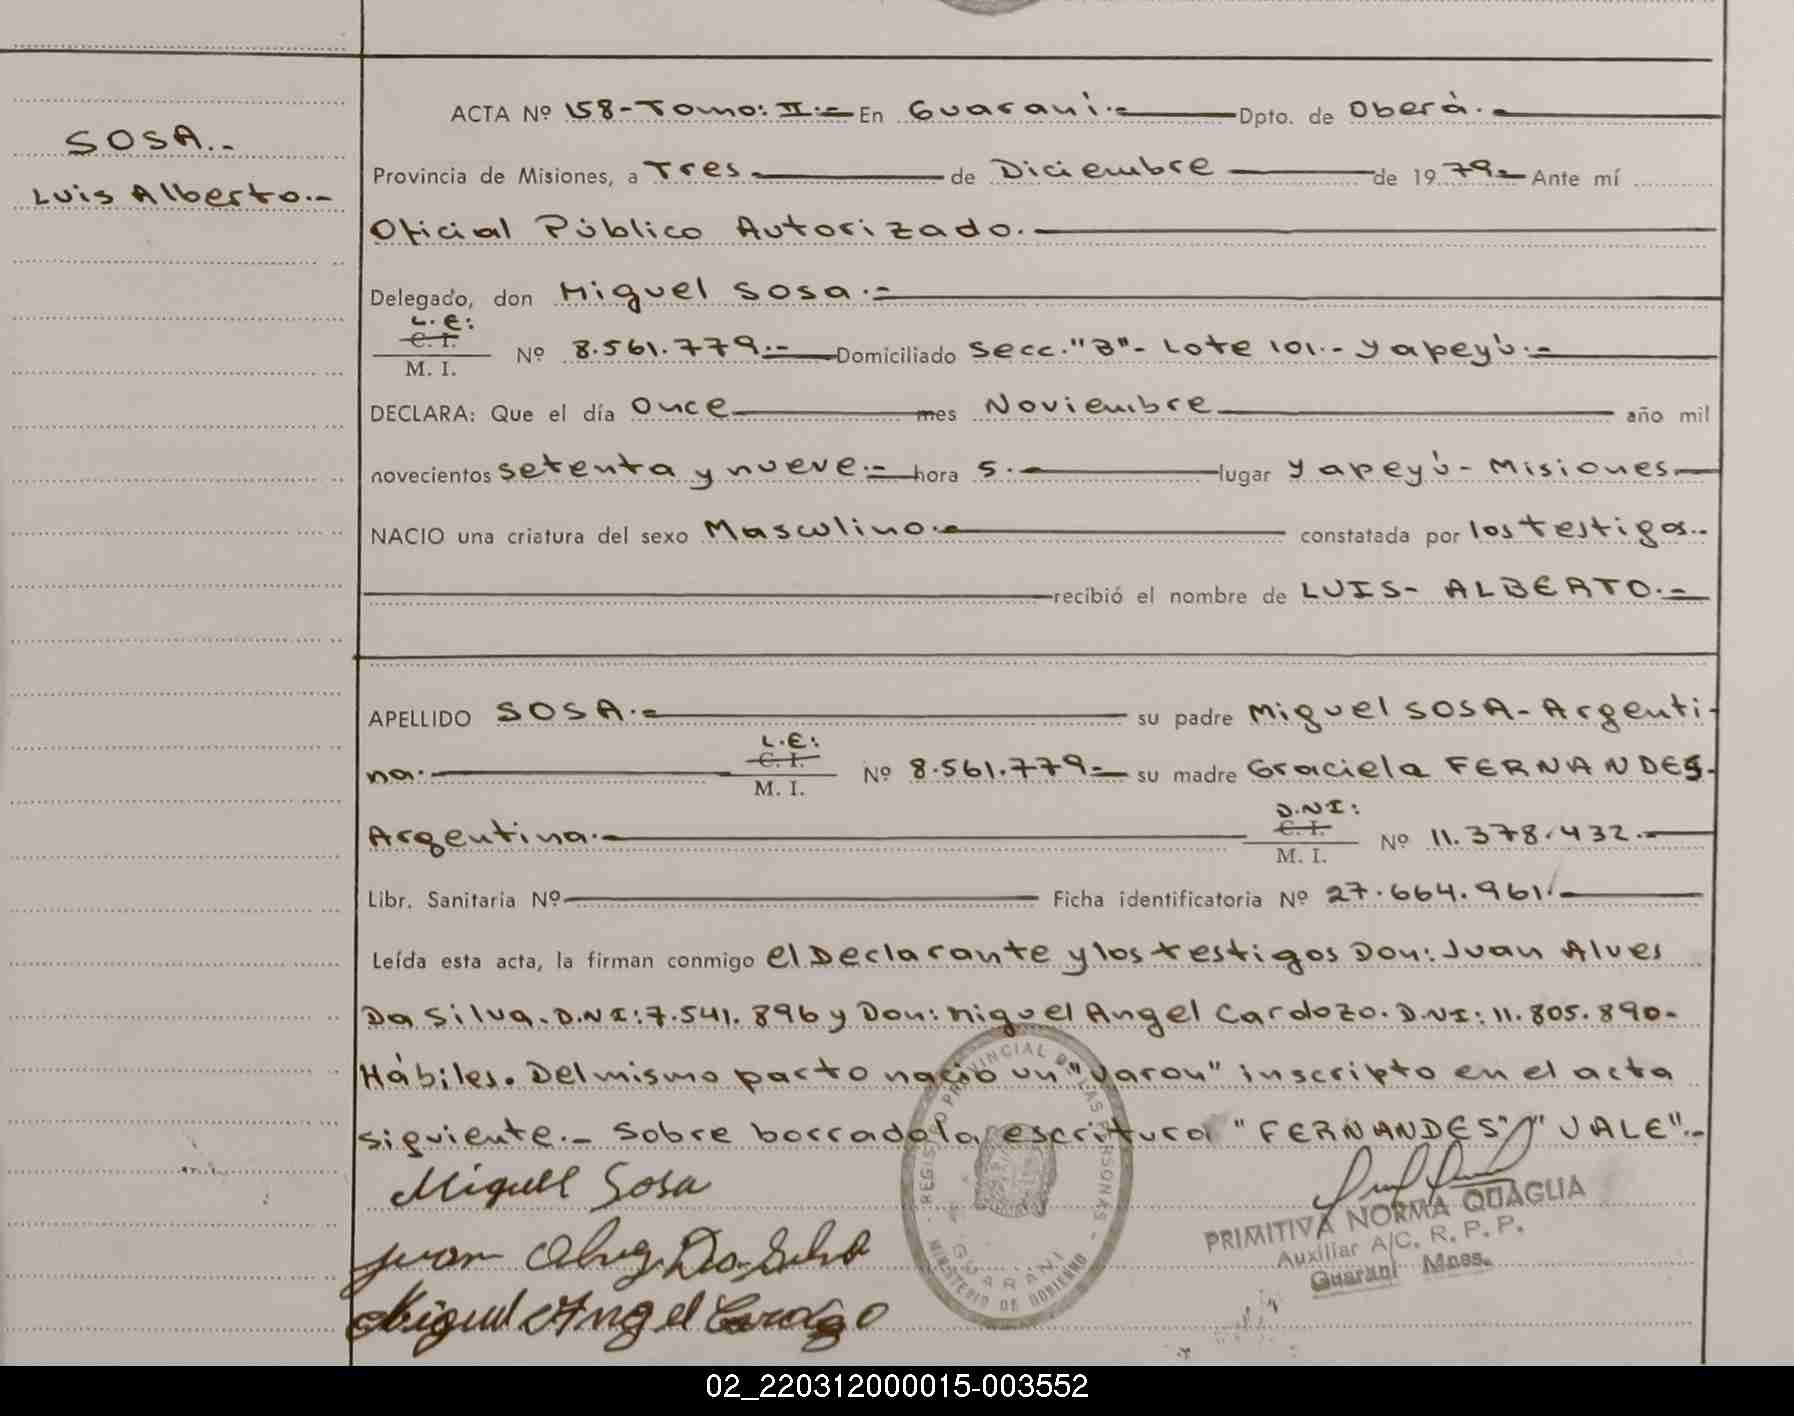 SOSA.-
Luis Alberto.-
ACTA Nº 158-Tomo: II.- En Guaraní.- Dpto. de Oberá.-
Provincia de Misiones, a Tres de Diciembre de 1979- Ante mí
Oficial Público Autorizado.-
Delegado, don Miguel Sosa.-
L.E:
C. I.
M. I. Nº 8.561.779.- Domiciliado Secc."B"- Lote 101.- Yapeyú.-
DECLARA: Que el día Once mes Noviembre año mil
novecientos setenta y nueve.- hora 5.- lugar Yapeyú- Misiones
NACIO una criatura del sexo Masculino.- constatada por los testigos.-
recibió el nombre de LUIS- ALBERTO.-
APELLIDO SOSA.- su padre Miguel SOSA- Argenti-
L.E:
C. I.
na.- M. I. Nº 8.561.779- su madre Graciela FERNANDES.
D.N.I:
C. I.
Argentina.- M. I. Nº 11.378.432.-
Libr. Sanitaria Nº Ficha identificatoria Nº 27.664.961.-
Leída esta acta, la firman conmigo el Declarante y los testigos Don: Juan Alves
Da Silva. D.N.I: 7.541.896 y Don: Miguel Angel Cardozo. D.N.I: 11.805.890-
Hábiles. Del mismo parto nació un "Varon" inscripto en el acta
siguiente.- Sobre borrado la escritura "FERNANDES" "VALE".-
Miguel Sosa
Juan Alves Da Silva
Miguel Angel Cardozo
REGISTRO PROVINCIAL DE LAS PERSONAS
GUARANI
MINISTERIO DE GOBIERNO
PRIMITIVA NORMA QUAGLIA
Auxiliar A/C. R. P. P.
Guaraní Mnes.
02_220312000015-003552